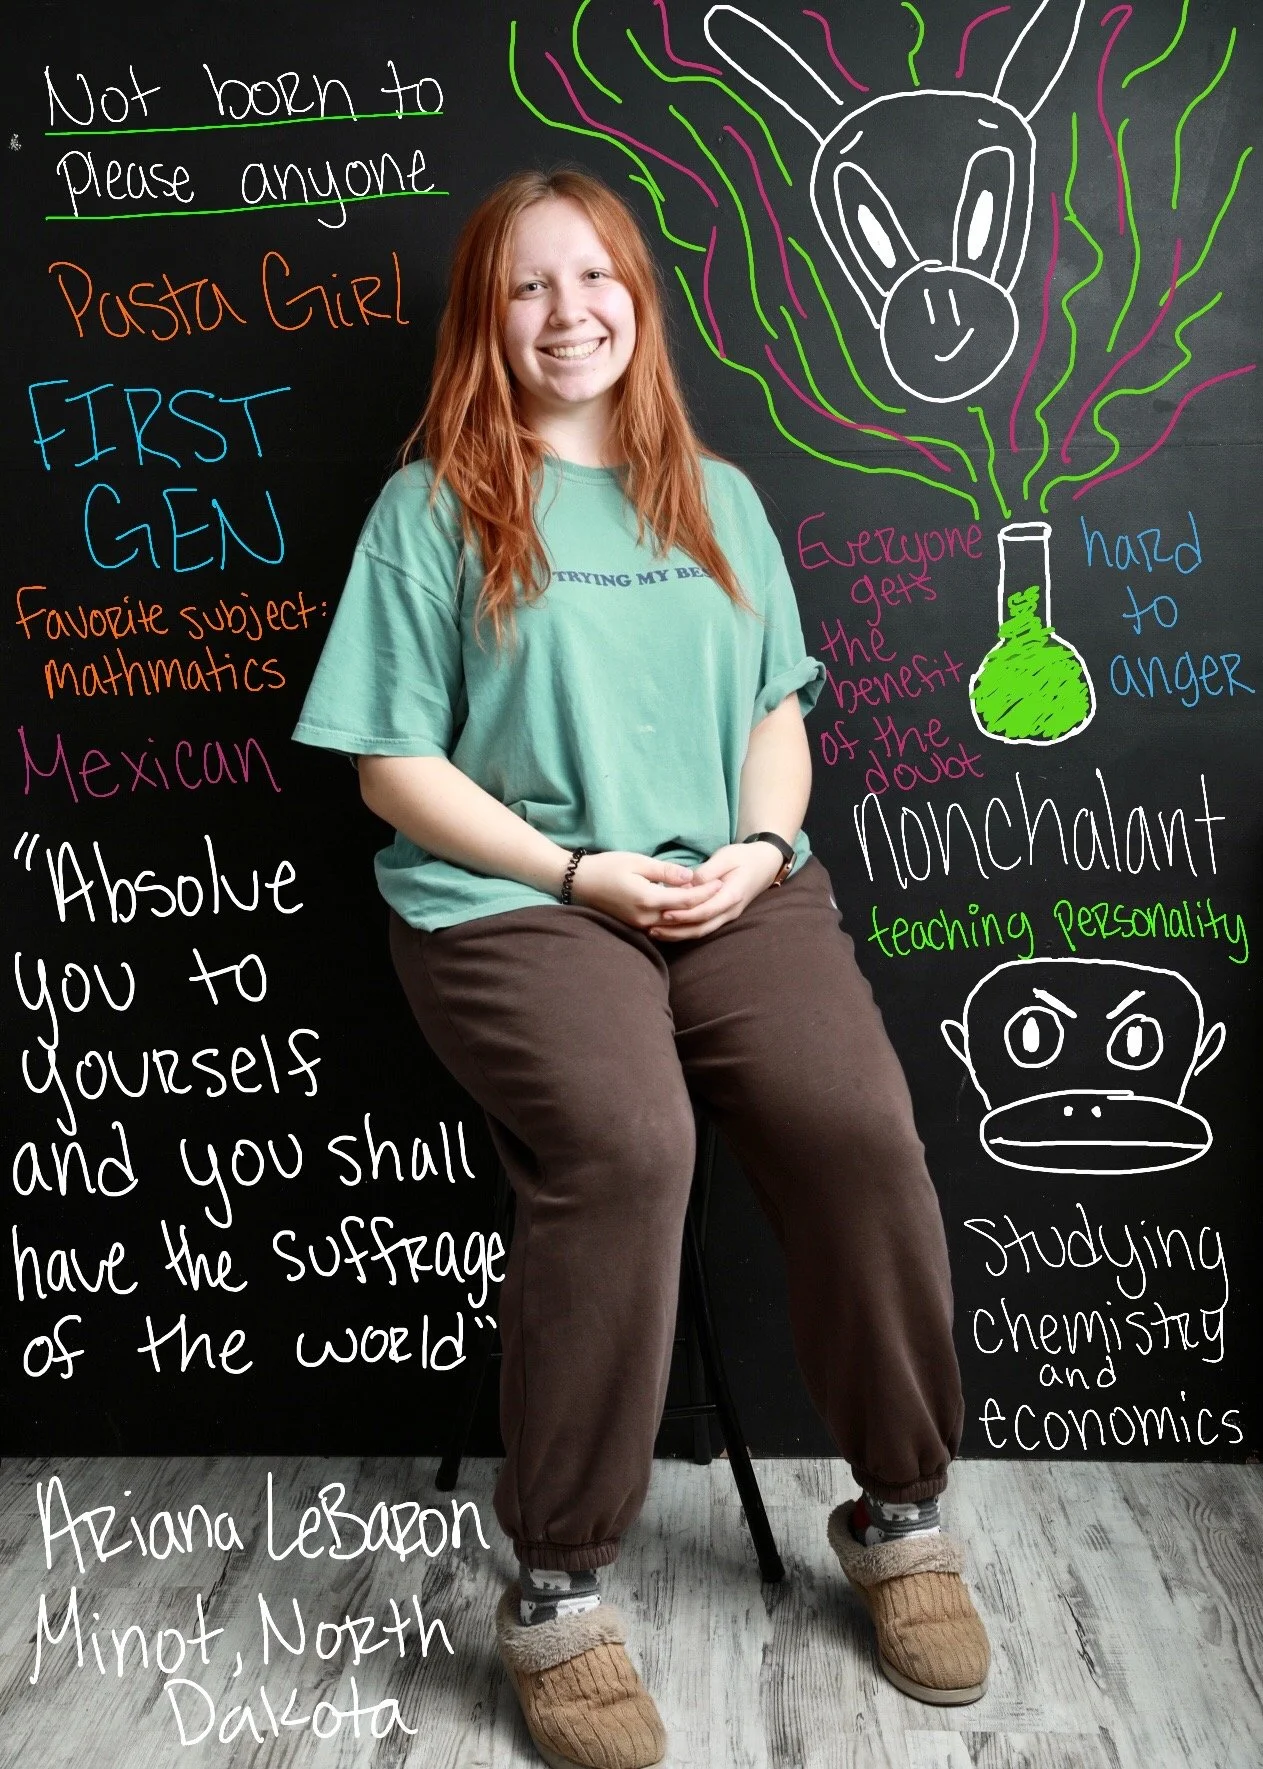 Not born to
please anyone
Pasta Girl
FIRST
GEN
Favorite subject:
mathmatics
Mexican
"Absolve
you to
yourself
and you shall
have the suffrage
of the world"
Ariana LeBaron
Minot, North
Dakota
TRYING MY BES
Everyone
gets
the
benefit
of the
doubt
hard
to
anger
nonchalant
teaching personality
studying
chemistry
and
economics